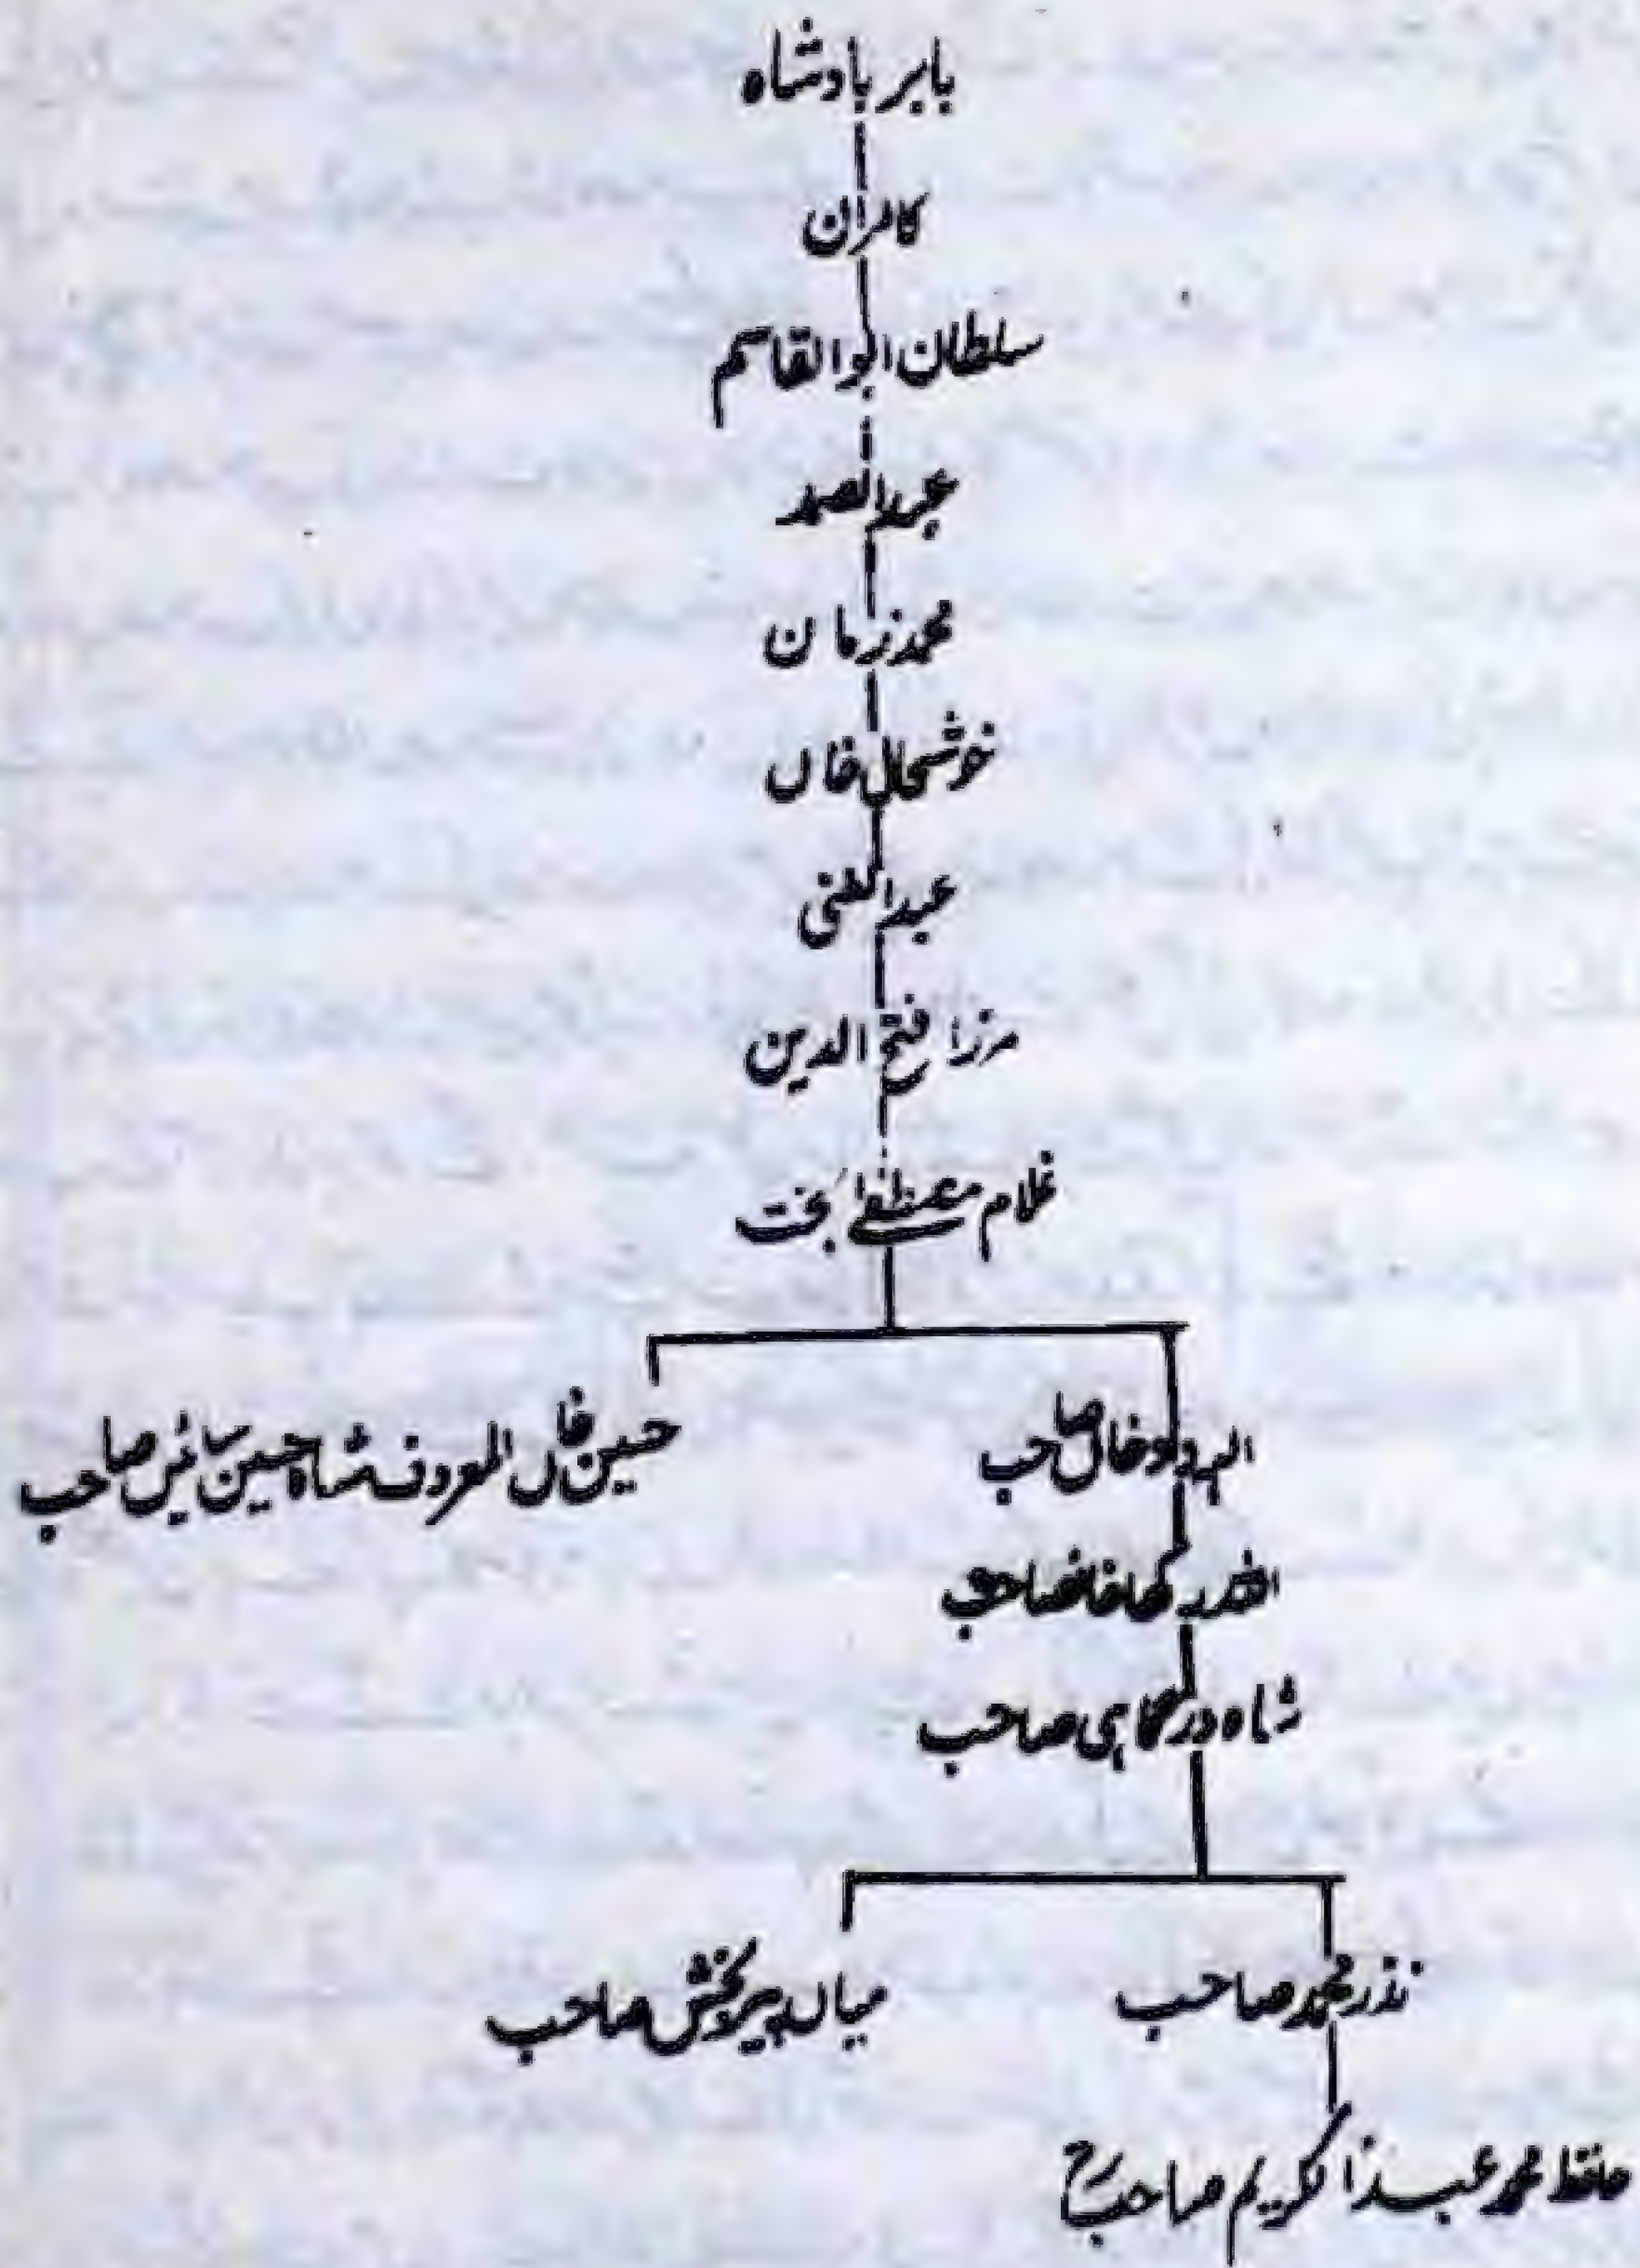 بابر بادشاہ
کامران
سلطان ابوالقاسم
عبدالصمد
محمد زمان
خوشحال خاں
مرزا فتح الدین
غلام مصطفےٰ بخت
الہ داد خاں صاحب
حسین خاں المعروف شاہ حسین سائیں صاحب
شاہ درگاہی صاحب
نذر محمد صاحب
میاں پیر بخش صاحب
حافظ محمد عبدالکریم صاحبؒ